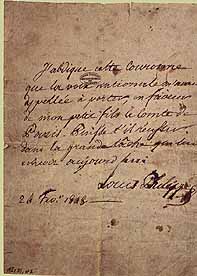 J'abdique cette Couronne
que la voix nationale m'avait
appellée à porter, en faveur
de mon petit fils le Comte de
Paris. Puisse t'il réussir
dans la grande tâche qui lui
échoit aujourd'hui
Louis Philippe
24 Fev. 1848